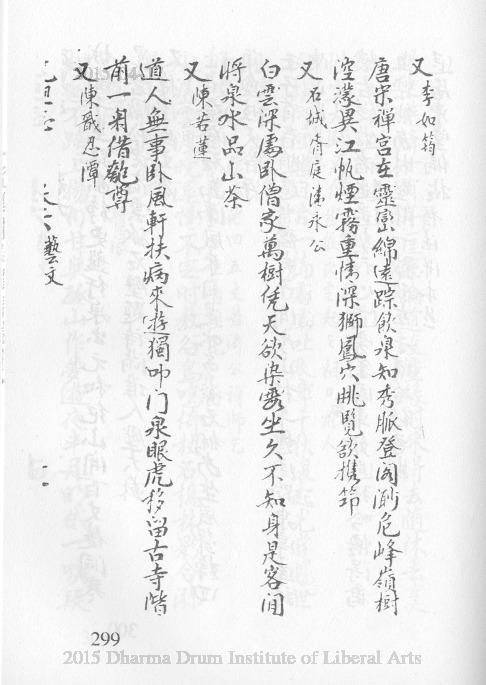 又 李如筠
唐宋禪宮在靈巒綿遠踪飲泉知秀脈登閣渺危峰嶺樹
空濛異江帆煙霧重情深獅鳳穴眺覽欲携筇
又 石城 永公
白雲深處臥僧家萬樹凭天欲染霞坐久不知身是客閒
將泉水品山茶
又 陳若蓮
道人無事臥風軒扶病來游獨叩门泉眼虎移留古寺階
前一菊借匏尊
又 陳 忍潭
藝文
299
2015 Dharma Drum Institute of Liberal Arts